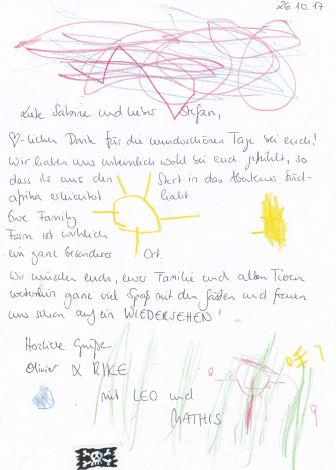 26.10.17
Liebe Sabine und lieber Stefan,
♡-lichen Dank für die wunderschönen Tage bei euch!
Wir haben uns unheimlich wohl bei euch gefühlt, so
dass ihr uns den Start in das Abenteuer Süd-
afrika erleichtert habt.
Eure Family
Farm ist wirklich
ein ganz besonderer Ort.
Wir wünschen euch, eurer Familie und allen Tieren
weiterhin ganz viel Spaß mit den Gästen und freuen
uns schon auf ein WIEDERSEHEN!
Herzliche Grüße
Olivier & RIKE
mit LEO und
MATHIS